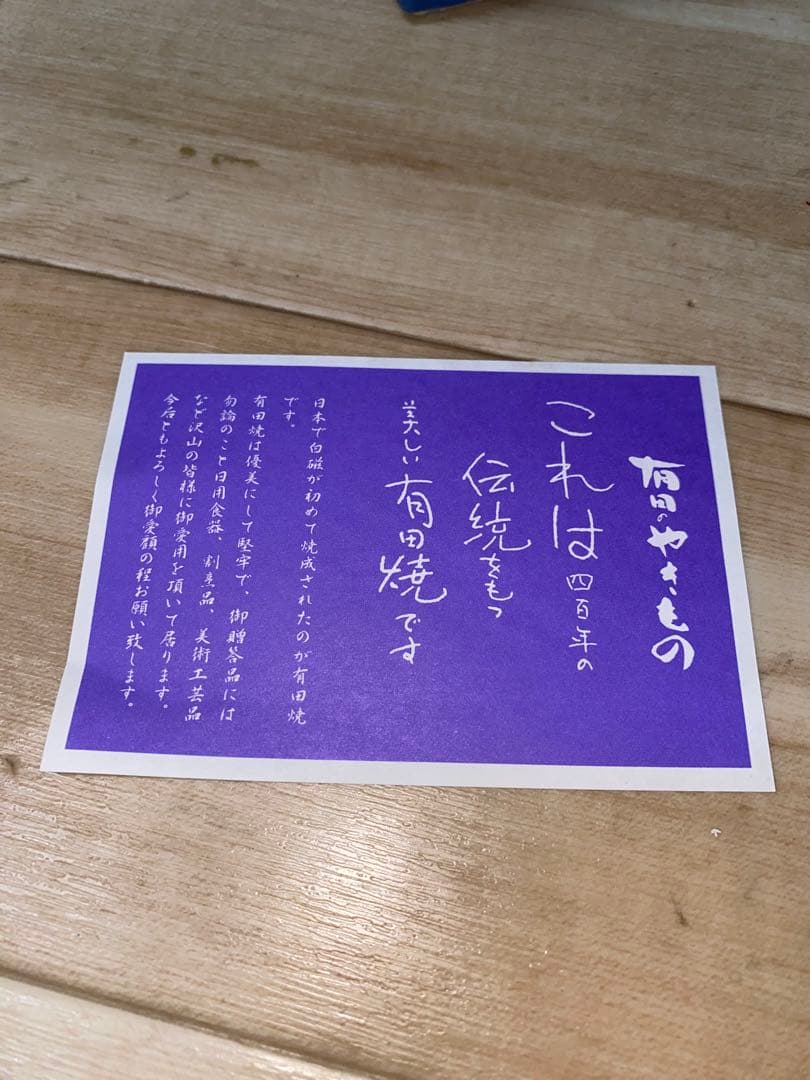 有田のやきもの
これは四百年の
伝統をもつ
美しい有田焼です
日本で白磁が初めて焼成されたのが有田焼
です。
有田焼は優美にして堅牢で、御贈答品には
勿論のこと日用食器、割烹品、美術工芸品
など沢山の皆様に御愛用を頂いて居ります。
今后ともよろしく御愛顧の程お願い致します。